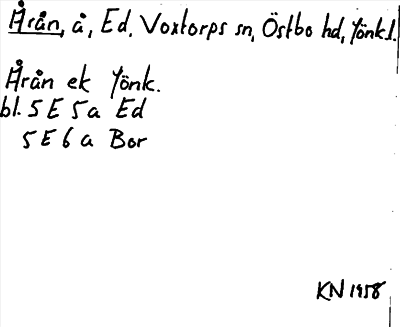 Årån, å, Ed, Voxtorps sn, Östbo hd, Jönk.l.
Årån ek Jönk.
bl. 5 E 5 a Ed
5 E 6 a Bor
KN 1958